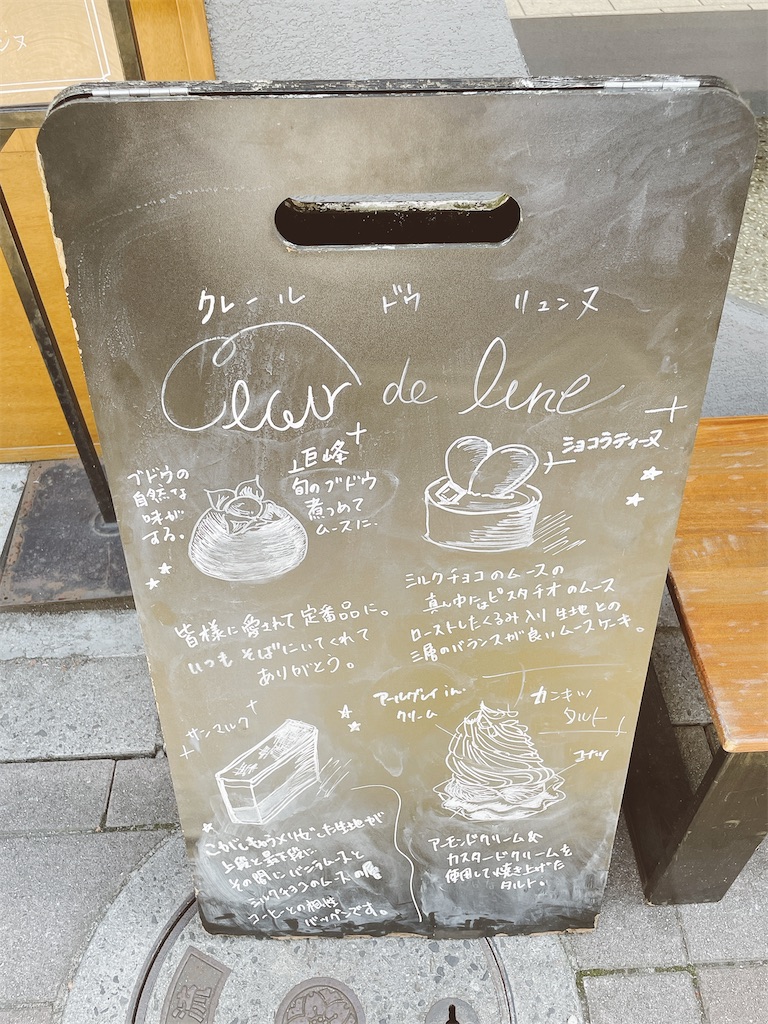 クレール ドゥ リュンヌ
Clair de lune
巨峰
旬のブドウ
煮つめて
ムースに。
ブドウの
自然な
味が
する。
皆様に愛されて定番品に。
いつもそばにいてくれて
ありがとう。
ショコラティーヌ
ミルクチョコのムースの
真ん中にはピスタチオのムース
ローストしたくるみ入り生地との
三層のバランスが良いムースケーキ。
サンマルク
こがしちゃうメリゼした生地が
上段と最下段に
その間にバニラムースと
ミルクチョコのムースの層
コーヒーとの相性
バツグンです。
カンキツ
タルト
アールグレイ in.
クリーム
アーモンドクリーム&
カスタードクリームを
使用して焼き上げた
タルト。
流